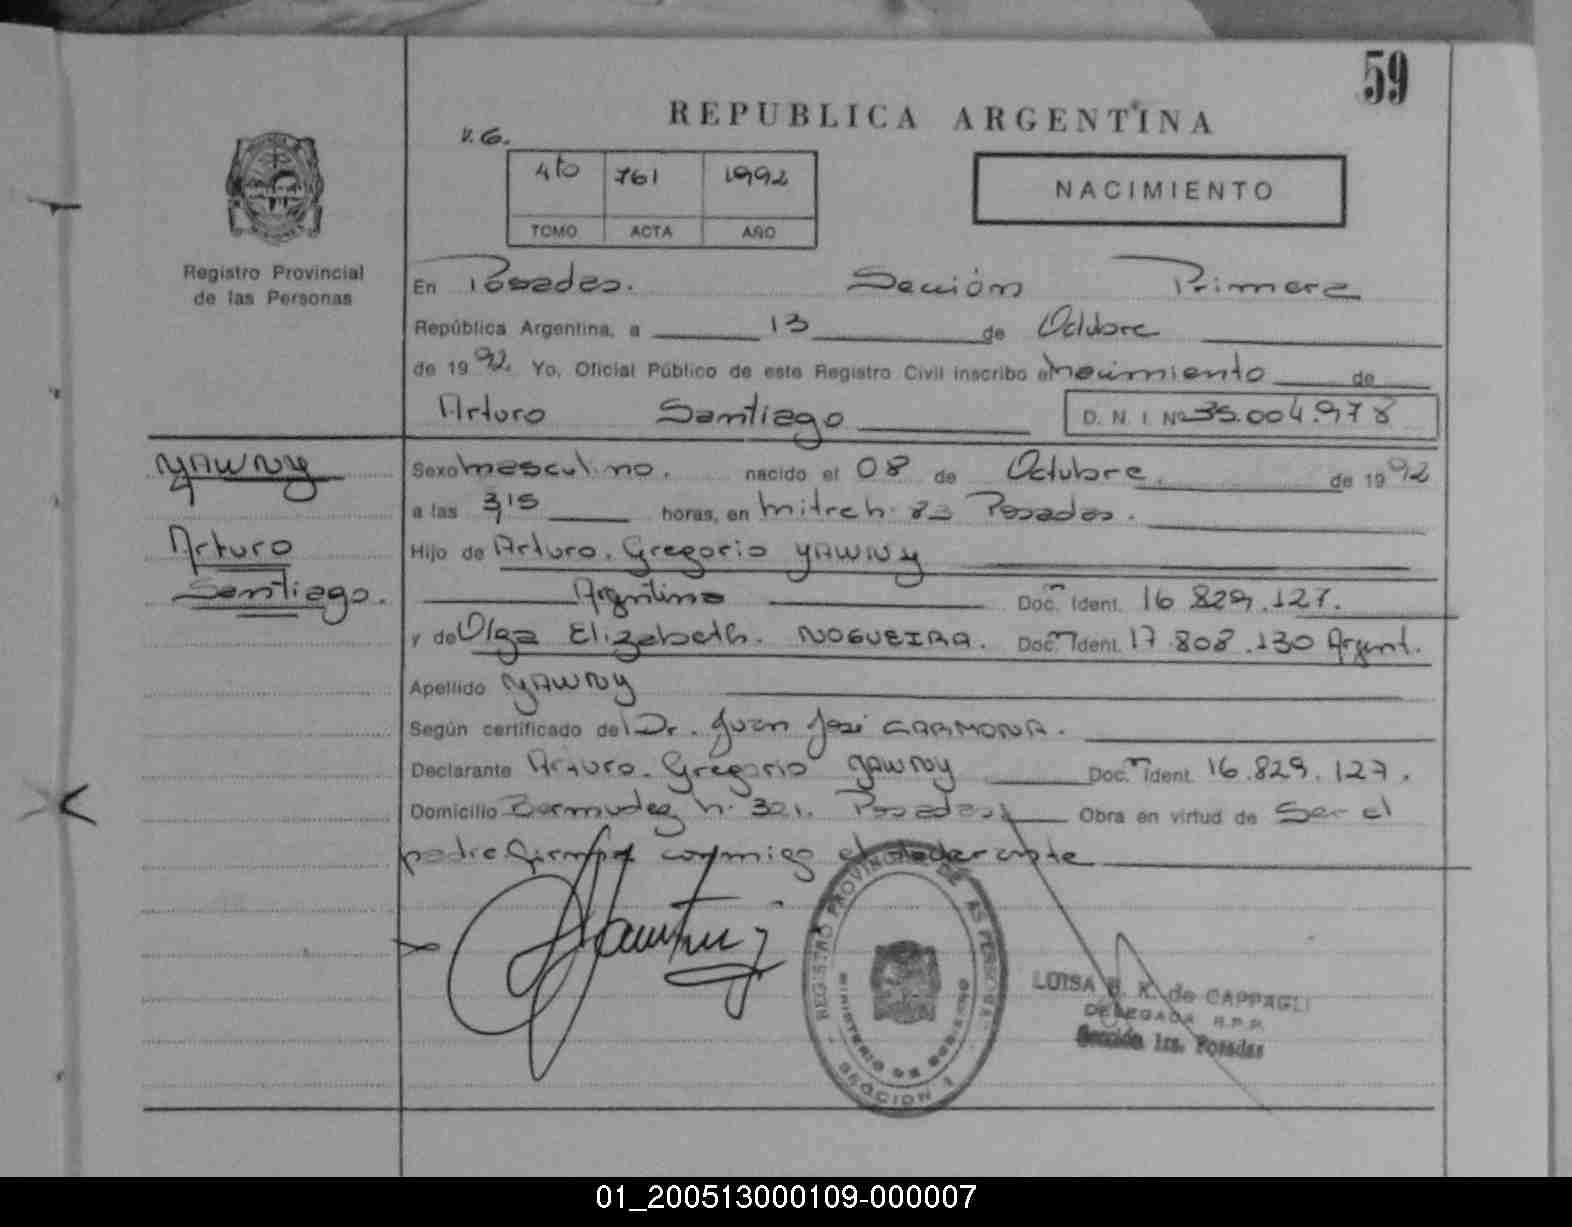 59
REPUBLICA ARGENTINA
V. G.
4to 761 1992
TOMO ACTA AÑO
NACIMIENTO
Registro Provincial
de las Personas
En Posadas. Sección Primera
República Argentina, a 13 de Octubre
de 1992. Yo, Oficial Público de este Registro Civil inscribo el nacimiento de
Arturo Santiago D. N. I. Nº 35.004.978
YAWNY
Arturo
Santiago.
Sexo masculino. nacido el 08 de Octubre. de 1992
a las 3,15 horas, en Mitre Posadas.
Hijo de Arturo. Gregorio YAWNY
Argentino Doc. Ident. 16.829.127.
y de Olga Elizabeth. NOGUEIRA. Doc. Ident. 17.808.130 Argent.
Apellido YAWNY
Según certificado del Dr. Juan José CARMONA.
Declarante Arturo. Gregorio YAWNY Doc. Ident. 16.829.127.
Domicilio Bermudez n. 321. Posadas Obra en virtud de Ser el
padre firma conmigo el declarante
REGISTRO PROVINCIAL DE LAS PERSONAS
MINISTERIO DE GOBIERNO
SECCION 1
LUISA K. de CAPPAGLI
DELEGADA R.P.P.
Sección 1ra. Posadas
01_200513000109-000007